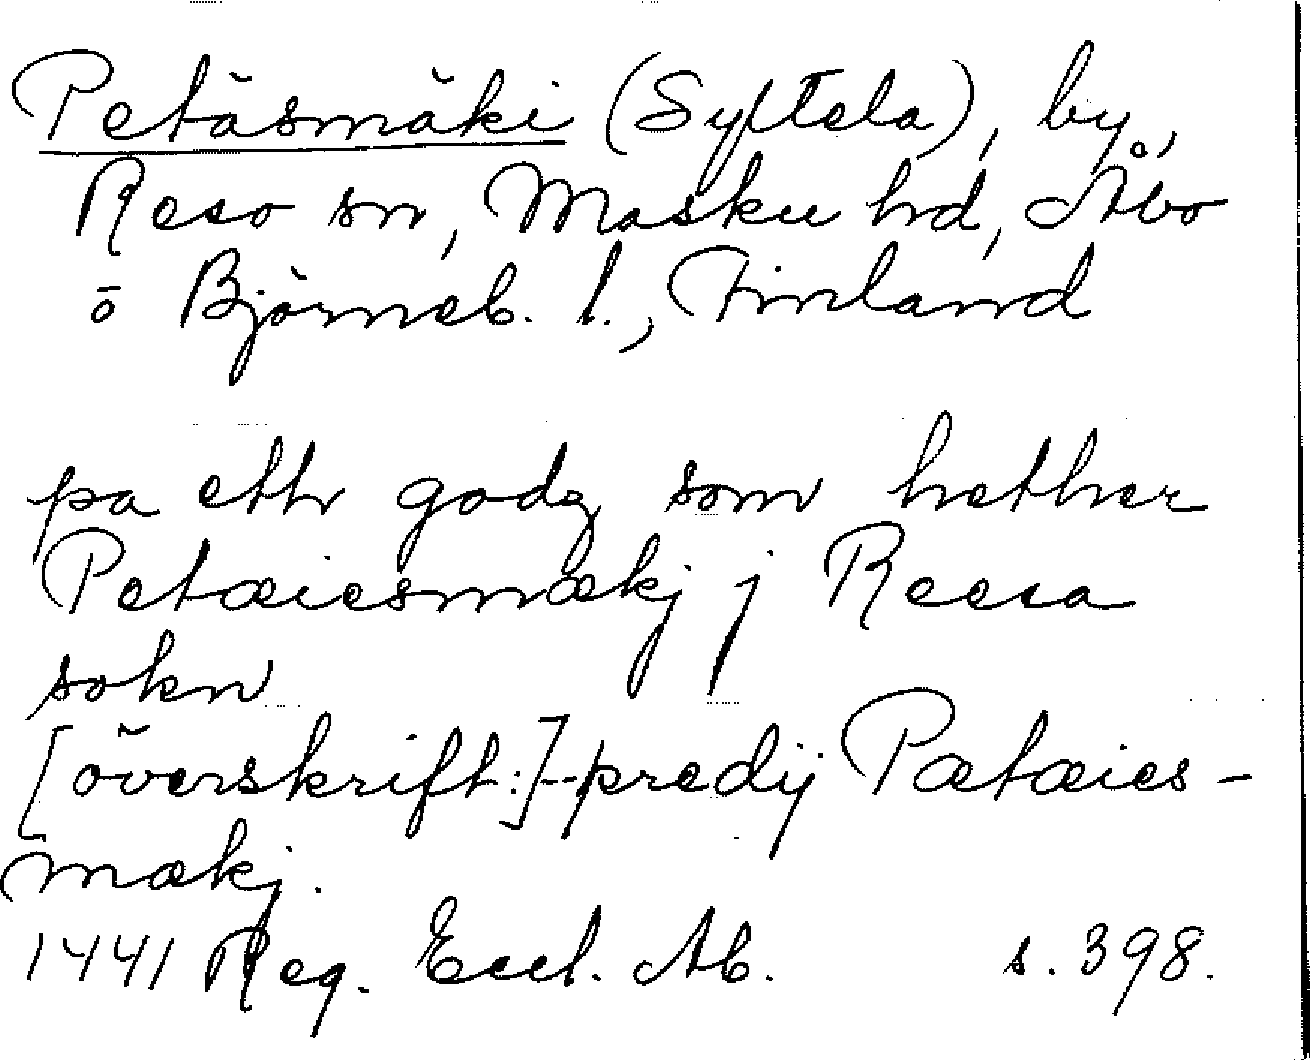 Petäsmäki (Syltela), by,
Reso sn, Masku hd, Åbo
o Björneb. l., Finland
pa eth godz som hether
Petæiesmækj j Reesa
sokn
[överskrift:]--predij Pætæies-
mækj.
1441 Reg. Eccl. Ab. s. 398.